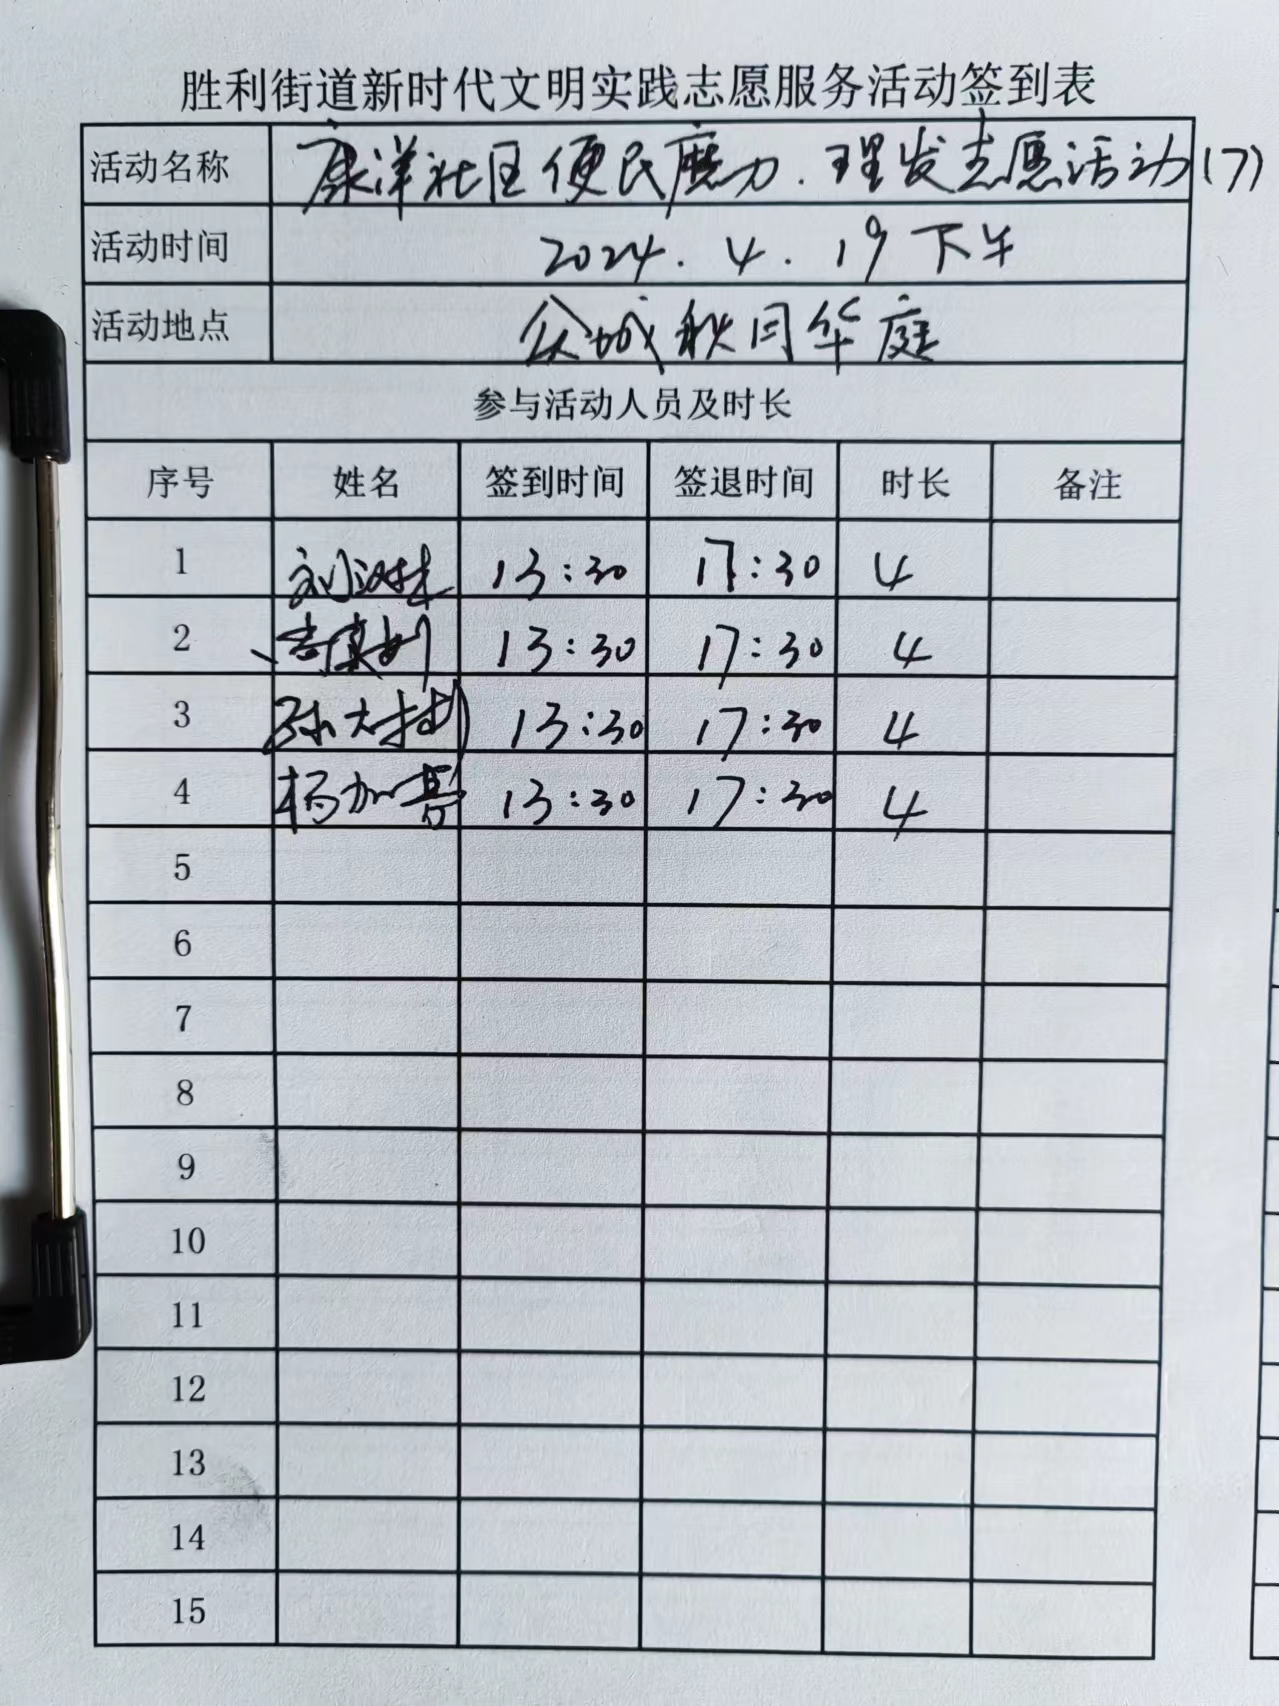 胜利街道新时代文明实践志愿服务活动签到表
活动名称 康洋社区便民磨刀.理发志愿活动(7)
活动时间 2024.4.19下午
活动地点 众城秋月华庭
参与活动人员及时长
序号 姓名 签到时间 签退时间 时长 备注
1 刘 13:30 17:30 4
2 13:30 17:30 4
3 孙大 13:30 17:30 4
4 杨加喜 13:30 17:30 4
5
6
7
8
9
10
11
12
13
14
15